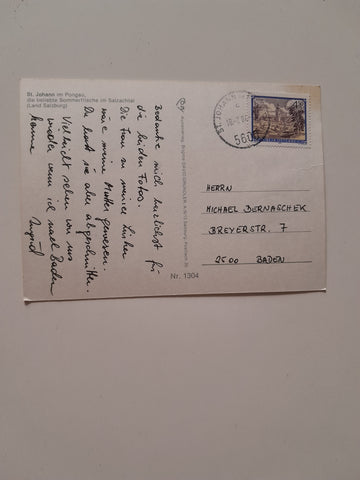 St. Johann im Pongau,
die beliebte Sommerfrische im Salzachtal
(Land Salzburg)
Bedanke mich herzlichst für
die beiden Fotos.
Die Frau zu meiner Linken
wäre meine Mutter gewesen.
Du hast sie aber abgeschnitten.
Vielleicht sehen wir uns
wieder wenn ich nach Baden
komme
Ingrid
Nr. 1304
ST. JOHANN
5600
HERRN
MICHAEL BERNASCHEK
BREYERSTR. 7
2500 BADEN